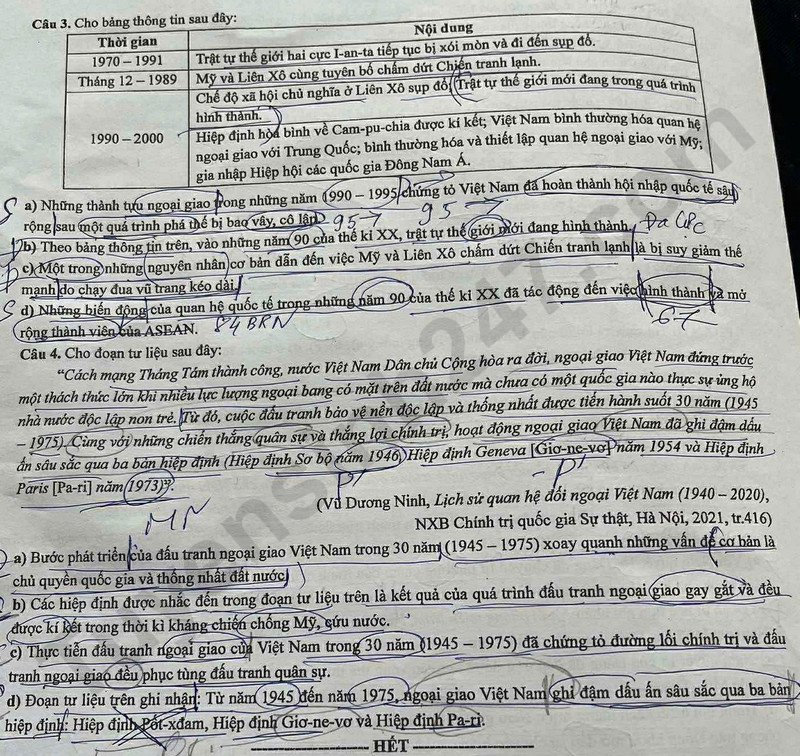 Câu 3. Cho bảng thông tin sau đây:
Thời gian Nội dung
1970 – 1991 Trật tự thế giới hai cực I-an-ta tiếp tục bị xói mòn và đi đến sụp đổ.
Tháng 12 – 1989 Mỹ và Liên Xô cùng tuyên bố chấm dứt Chiến tranh lạnh.
1990 – 2000 Chế độ xã hội chủ nghĩa ở Liên Xô sụp đổ. Trật tự thế giới mới đang trong quá trình
hình thành.
Hiệp định hòa bình về Cam-pu-chia được kí kết; Việt Nam bình thường hóa quan hệ
ngoại giao với Trung Quốc; bình thường hóa và thiết lập quan hệ ngoại giao với Mỹ;
gia nhập Hiệp hội các quốc gia Đông Nam Á.
S a) Những thành tựu ngoại giao trong những năm 1990 – 1995 chứng tỏ Việt Nam đã hoàn thành hội nhập quốc tế sâu
rộng sau một quá trình phá thế bị bao vây, cô lập.
95 → 95 →
b) Theo bảng thông tin trên, vào những năm 90 của thế kỉ XX, trật tự thế giới mới đang hình thành.
c) Một trong những nguyên nhân cơ bản dẫn đến việc Mỹ và Liên Xô chấm dứt Chiến tranh lạnh là bị suy giảm thế
mạnh do chạy đua vũ trang kéo dài.
S d) Những biến động của quan hệ quốc tế trong những năm 90 của thế kỉ XX đã tác động đến việc hình thành và mở
rộng thành viên của ASEAN. 84 BRN 67
Câu 4. Cho đoạn tư liệu sau đây:
“Cách mạng Tháng Tám thành công, nước Việt Nam Dân chủ Cộng hòa ra đời, ngoại giao Việt Nam đứng trước
một thách thức lớn khi nhiều lực lượng ngoại bang có mặt trên đất nước mà chưa có một quốc gia nào thực sự ủng hộ
nhà nước độc lập non trẻ. Từ đó, cuộc đấu tranh bảo vệ nền độc lập và thống nhất được tiến hành suốt 30 năm (1945
– 1975). Cùng với những chiến thắng quân sự và thắng lợi chính trị, hoạt động ngoại giao Việt Nam đã ghi đậm dấu
ấn sâu sắc qua ba bản hiệp định (Hiệp định Sơ bộ năm 1946, Hiệp định Geneva [Giơ-ne-vơ] năm 1954 và Hiệp định
Paris [Pa-ri] năm 1973)”.
P' P'
MN
(Vũ Dương Ninh, Lịch sử quan hệ đối ngoại Việt Nam (1940 – 2020),
NXB Chính trị quốc gia Sự thật, Hà Nội, 2021, tr.416)
a) Bước phát triển của đấu tranh ngoại giao Việt Nam trong 30 năm (1945 – 1975) xoay quanh những vấn đề cơ bản là
chủ quyền quốc gia và thống nhất đất nước.
b) Các hiệp định được nhắc đến trong đoạn tư liệu trên là kết quả của quá trình đấu tranh ngoại giao gay gắt và đều
được kí kết trong thời kì kháng chiến chống Mỹ, cứu nước.
c) Thực tiễn đấu tranh ngoại giao của Việt Nam trong 30 năm (1945 – 1975) đã chứng tỏ đường lối chính trị và đấu
tranh ngoại giao đều phục tùng đấu tranh quân sự.
d) Đoạn tư liệu trên ghi nhận: Từ năm 1945 đến năm 1975, ngoại giao Việt Nam ghi đậm dấu ấn sâu sắc qua ba bản
hiệp định: Hiệp định Pốt-xđam, Hiệp định Giơ-ne-vơ và Hiệp định Pa-ri.
HẾT